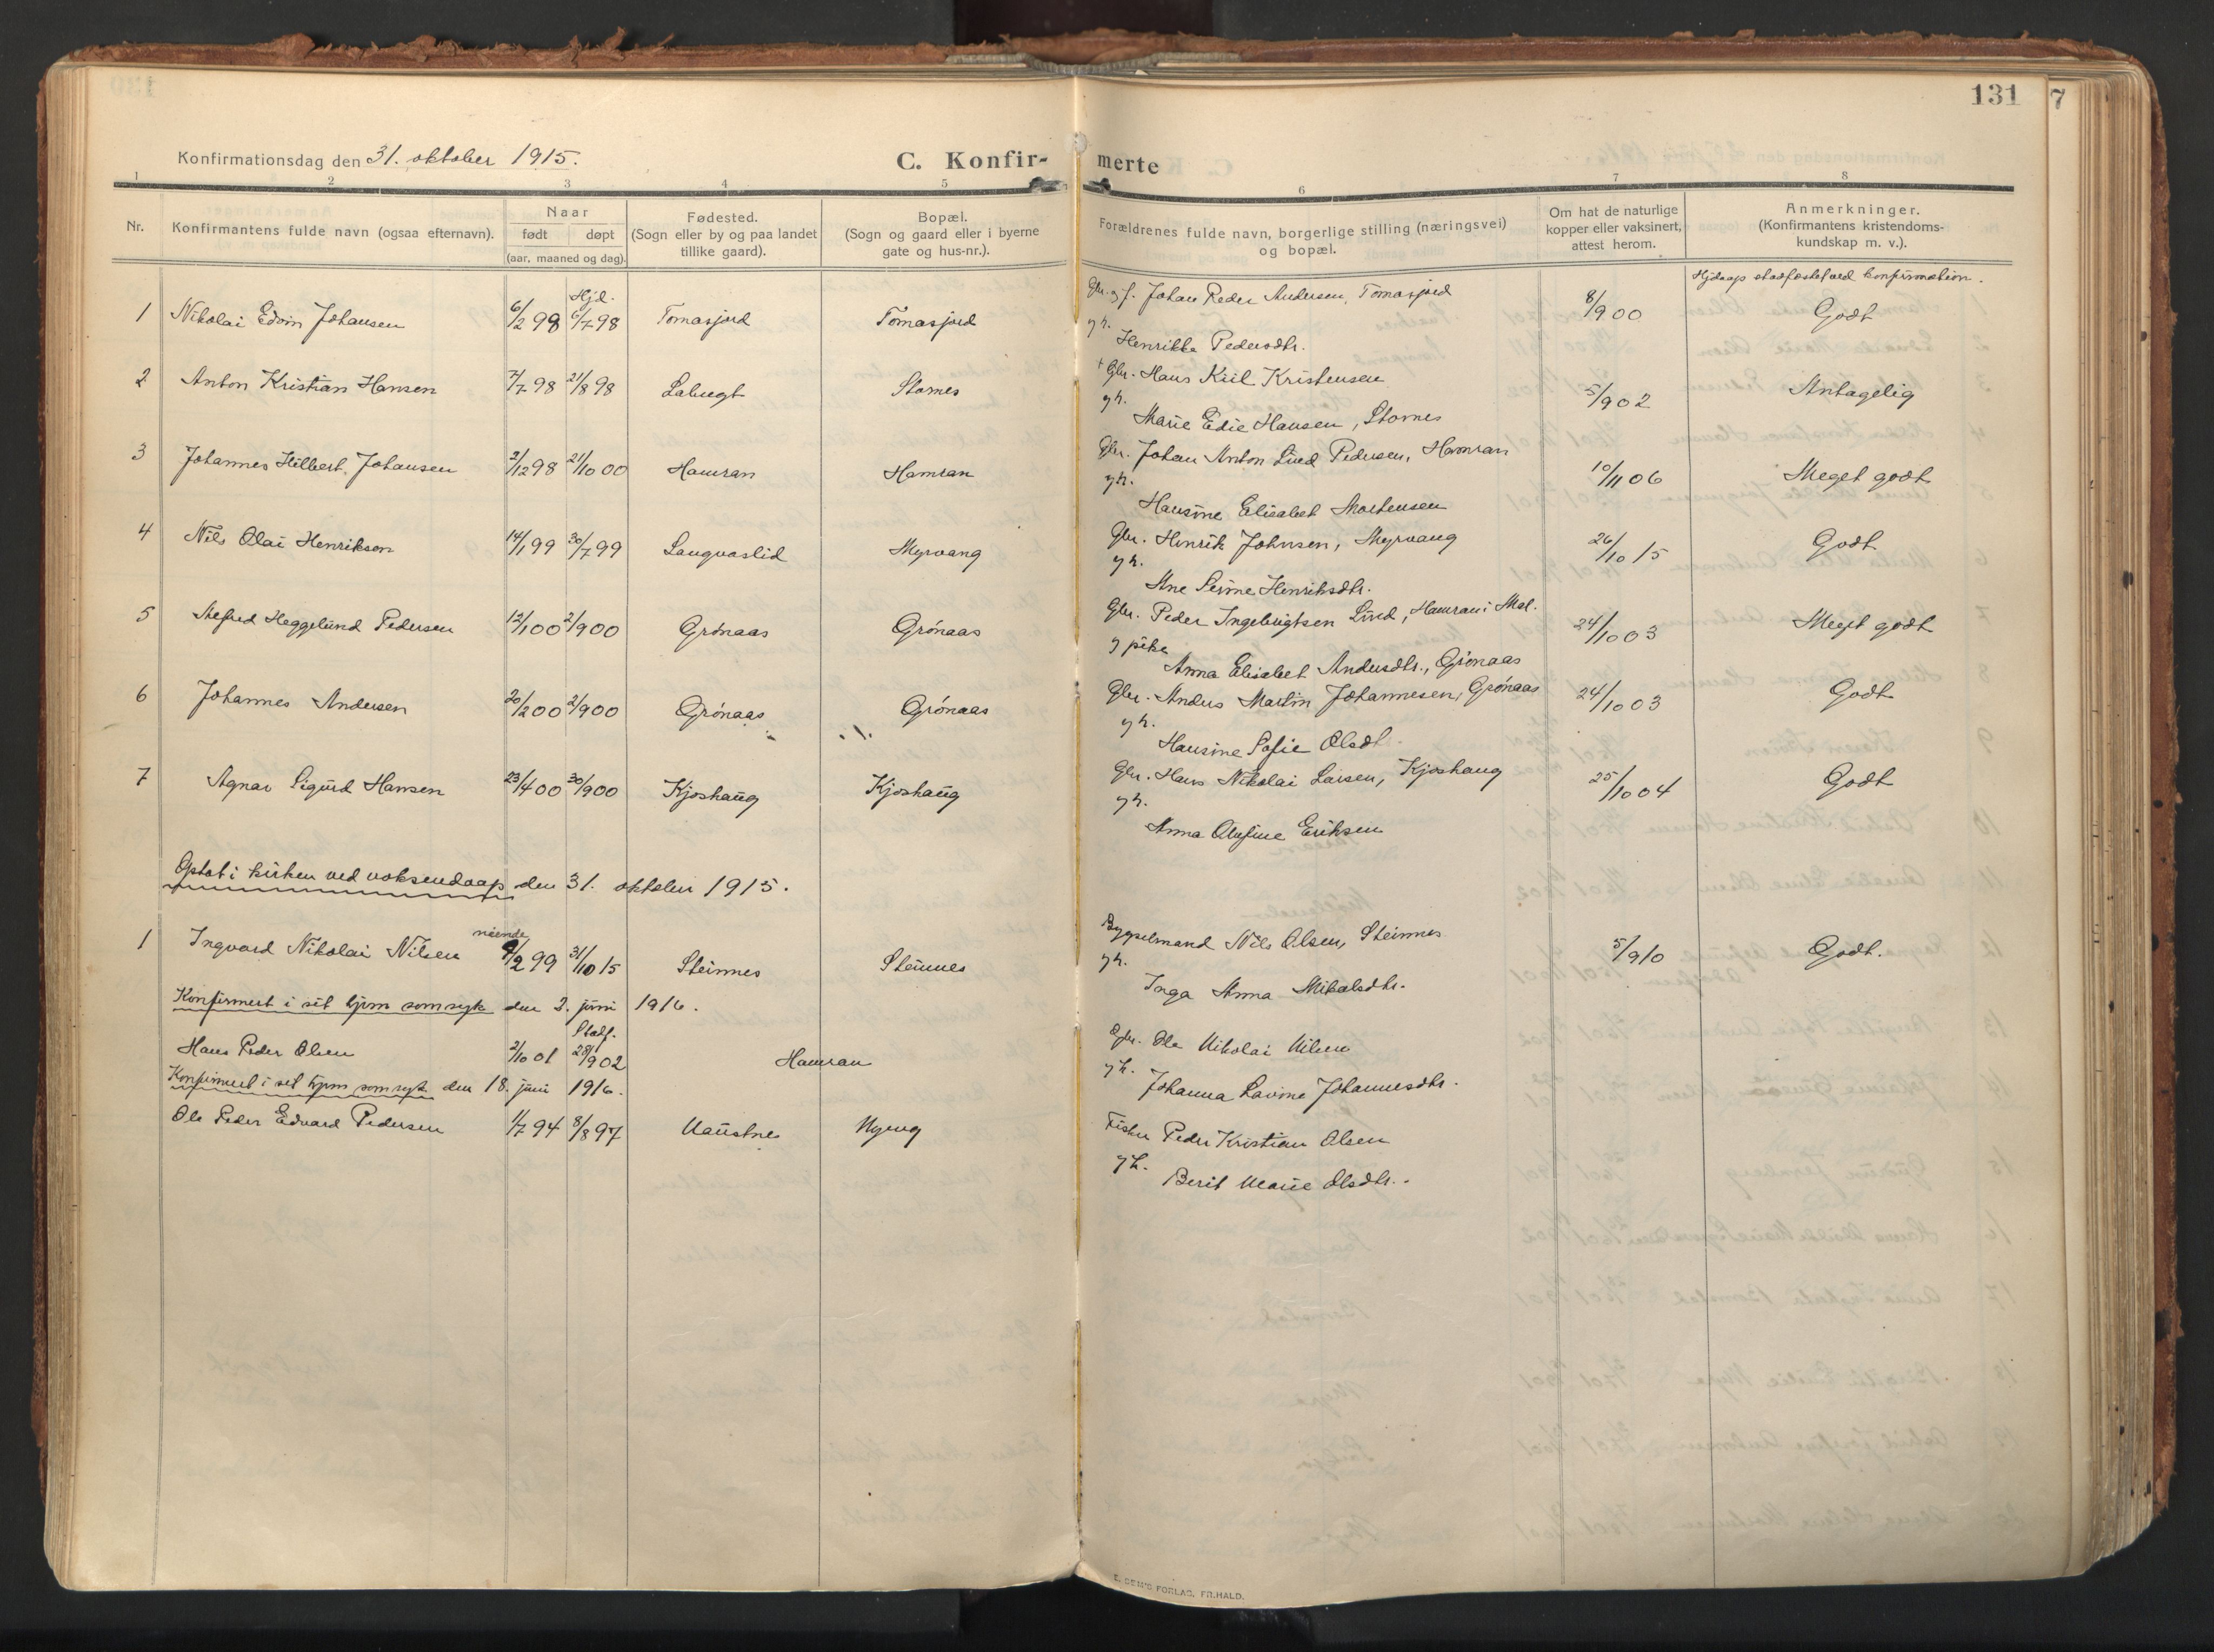 131
7
Konfirmationsdag den 31. oktober 1915.
C. Konfir-
merte
1 2 3 4 5 6 7 8
Nr.
Konfirmantens fulde navn (ogsaa efternavn).
Naar
født
døpt
(aar, maaned og dag).
Fødested.
(Sogn eller by og paa landet
tillike gaard).
Bopæl.
(Sogn og gaard eller i byerne
gate og hus-nr.).
Forældrenes fulde navn, borgerlige stilling (næringsvei)
og bopæl.
Om hat de naturlige
kopper eller vaksinert,
attest herom.
Anmerkninger.
(Konfirmantens kristendoms-
kundskap m. v.).
Hjdaap stadfæstet ved konfirmation.
Hjd.
1 Nikolai Edvin Johansen 6/2 98 6/7 98 Tomasjord Tomasjord Gbr. og f. Johan Peder Andersen, Tomasjord 8/9 00 Godt
g h.
Henrikke Pedersdtr.
2 Anton Kristian Hansen 7/7 98 21/8 98 Labugt Stornes + Gbr. Hans Kiil Kristensen 5/9 02 Antagelig
g h.
Marie Edie Hansen, Stornes
3 Johannes Hilbert Johansen 2/12 98 21/10 00 Hamran Hamran Gbr. Johan Anton Lind Pedersen, Hamran 10/11 06 Meget godt
g h.
Hansine Elisabet Mortensen
4 Nils Olai Henriksen 14/1 99 30/7 99 Langvaslid Myrvang Gbr. Henrik Johnsen, Myrvang 26/10 15 Godt
g h.
Ane Henriksdtr.
5 Heggelund Pedersen 12/1 00 2/9 00 Grönaas Grönaas Gbr. Peder Ingebrigtsen Lind, Hamran i Mal. 24/10 03 Meget godt
g pike
Anna Elisabet Andersdtr., Grönaas
6 Johannes Andersen 20/2 00 2/9 00 Grönaas Grönaas Gbr. Anders Martin Johannesen, Grönaas 24/10 03 Godt
g h.
Hansine Sofie Olsdt.
7 Agnar Sigurd Hansen 23/4 00 30/9 00 Kjoshaug Kjoshaug Gbr. Hans Nikolai Larsen, Kjoshaug 25/10 04 Godt
g h.
Anna Olufine Eriksen
Optat i kirken ved voksendaap den 31. oktober 1915.
niende
1 Ingvard Nikolai Nilsen 9/2 99 31/10 15 Steinnes Steinnes Bygselmand Nils Olsen, Steinnes 5/9 10 Godt.
g h.
Inga Anna Mikalsdtr.
Konfirmert i sit hjem som syk den 2. juni 1916.
Stadf.
Hans Peder Olsen 2/10 01 28/9 02 Hamran Gbr. Ole Nikolai Nilsen
g h.
Johanna Lavine Johannesdtr.
Konfirmert i sit hjem som syk den 18. juni 1916.
Ole Peder Edvard Pedersen 1/7 94 8/8 97 Naustnes Nyeng Fisker Peder Kristian Olsen
g h.
Berit Marie Olsdtr.
E. SEM'S FORLAG, FR.HALD.